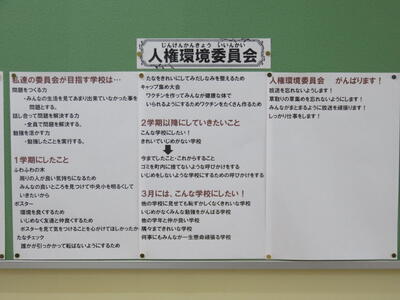 じんけんかんきょう いいんかい
人権環境委員会
私達の委員会が目指す学校は…
問題をつくる力
・みんなの生活を見てあまり出来ていなかった事を
問題とする。
話し合って問題を解決する力
・全員で問題を解決する。
勉強を活かす力
・勉強したことを実行する。
1学期にしたこと
ふわふわの木
周りの人が良い気持ちになるため
みんなの良いところを見つけて中央小を明るくして
いきたいから
ポスター
環境を良くするため
いじめなく友達と仲良くするため
ポスターを見て気をつけることを心がけてほしかったから
たなチェック
誰かが引っかかって転ばないようにするため
たなをきれいにしてみだしなみを整えるため
キャップ集め大会
ワクチンを作ってみんなが健康な体で
いられるようにするためワクチンをたくさん作るため
2学期以降にしていきたいこと
こんな学校にしたい!
きれいでいじめがない学校
今までしたこと・これからすること
ゴミを町内に捨てないような呼びかけをする
いじめをしないような学校にするための呼びかけをする
3月には、こんな学校にしたい!
他の学校に見せても恥ずかしくなくきれいな学校
いじめがなくみんな勉強をがんばる学校
他の学年と仲が良い学校
隅々まできれいな学校
何事にもみんなが一生懸命頑張る学校
人権環境委員会 がんばります!
放送を忘れないようにします!
草取りの草集めを忘れないようにします!
みんながまとまるように放送を頑張ります!
しっかり仕事をします!